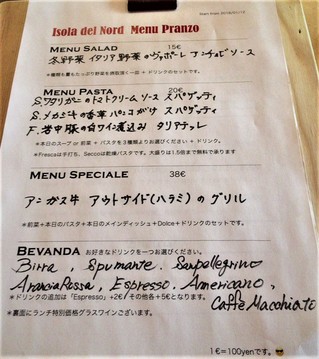 Isola del Nord Menu Pranzo
MENU SALAD 15€
冬野菜 イタリア野菜のヴァポーレ アンチョビソース
MENU PASTA 20€
S.ワタリガニのトマトクリームソース スパゲッティ
S.メカジキの香草パン粉がけ スパゲッティ
F.岩中豚の白ワイン煮込み タリアテッレ
*本日のスープ or 前菜 + パスタを3種類よりお選びください + ドリンク。
*Frescaは手打ち、Seccoは乾燥パスタです。大盛りは1.5倍まで無料で承ります
MENU SPECIALE 38€
アンガス牛 アウトサイド(ハラミ)のグリル
*前菜+本日のパスタ+本日のメインディッシュ+Dolce+ドリンクのセットです。
BEVANDA お好きなドリンクを一つお選びください。
Birra, Spumante. Sanpellegrino
AranciaRossa, Espresso. Americano,
Caffè Macchiato
*ドリンクの追加は「Espresso」+2€/ その他各+5€となります。
*裏面にランチ特別価格グラスワインございます。
1€=100yenです。😎